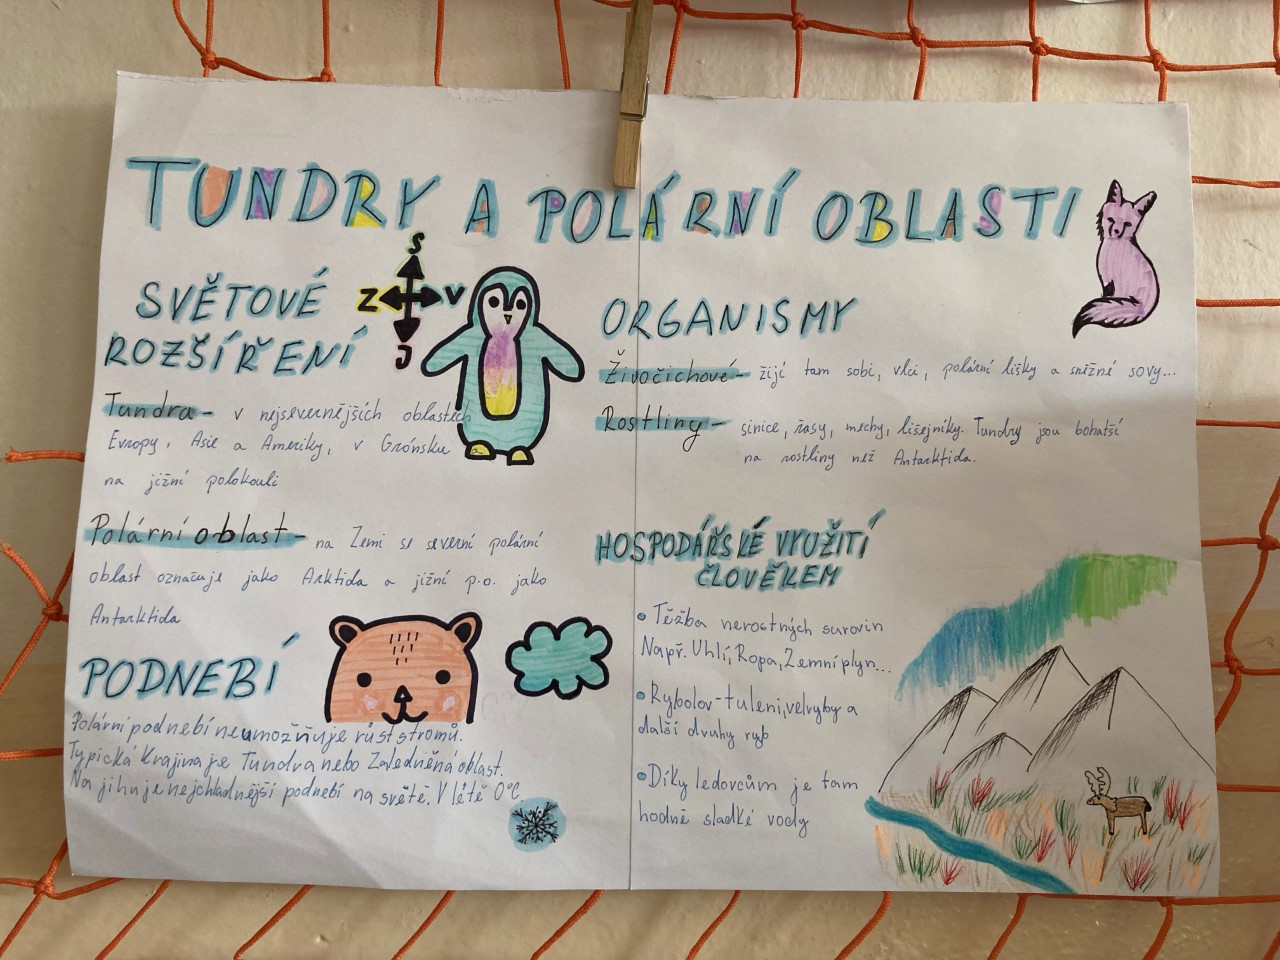 TUNDRY A POLÁRNÍ OBLASTI
SVĚTOVÉ
ROZŠÍŘENÍ
S
Z V
J
Tundra - v nejsevernějších oblastech
Evropy, Asie a Ameriky, v Grónsku
na jižní polokouli
Polární oblast - na Zemi se severní polární
oblast označuje jako Arktida a jižní p.o. jako
Antarktida
PODNEBÍ
Polární podnebí neumožňuje růst stromů.
Typická Krajina je Tundra nebo Zaledněná oblast.
Na jihu je nejchladnější podnebí na světě. V létě 0°C
ORGANISMY
Živočichové - žijí tam sobi, vlci, polární lišky a sněžné sovy...
Rostliny - sinice, řasy, mechy, lišejníky. Tundry jsou bohatší
na rostliny než Antarktida.
HOSPODÁŘSKÉ VYUŽITÍ
ČLOVĚKEM
• Těžba nerostných surovin
Např. Uhlí, Ropa, Zemní plyn...
• Rybolov - tuleni, velryby a
další druhy ryb
• Díky ledovcům je tam
hodně sladké vody